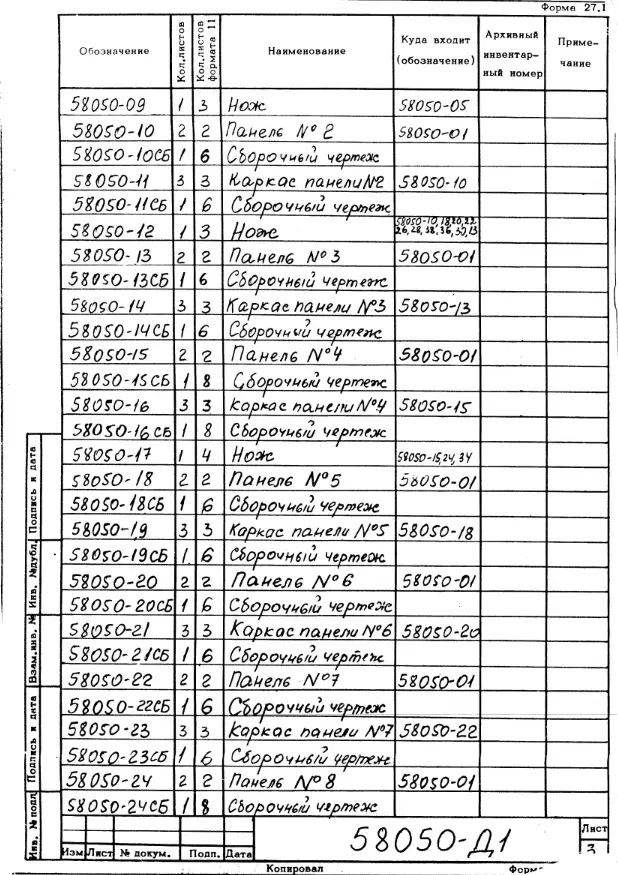 Форма 27.1
Обозначение Кол.листов Кол.листов формата 11 Наименование Куда входит (обозначение) Архивный инвентарный номер Примечание
58050-09 1 3 Нож 58050-05
58050-10 2 2 Панель №2 58050-01
58050-10СБ 1 6 Сборочный чертеж
58050-11 3 3 Каркас панели №2 58050-10
58050-11СБ 1 6 Сборочный чертеж
58050-12 1 3 Нож 58050-10, 18, 20, 22
58050-13 2 2 Панель №3 58050-01
58050-13СБ 1 6 Сборочный чертеж
58050-14 3 3 Каркас панели №3 58050-13
58050-14СБ 1 6 Сборочный чертеж
58050-15 2 2 Панель №4 58050-01
58050-15СБ 1 8 Сборочный чертеж
58050-16 3 3 Каркас панели №4 58050-15
58050-16СБ 1 8 Сборочный чертеж
58050-17 1 4 Нож 58050-15, 24, 34
58050-18 2 2 Панель №5 58050-01
58050-18СБ 1 6 Сборочный чертеж
58050-19 3 3 Каркас панели №5 58050-18
58050-19СБ 1 6 Сборочный чертеж
58050-20 2 2 Панель №6 58050-01
58050-20СБ 1 6 Сборочный чертеж
58050-21 3 3 Каркас панели №6 58050-20
58050-21СБ 1 6 Сборочный чертеж
58050-22 2 2 Панель №7 58050-01
58050-22СБ 1 6 Сборочный чертеж
58050-23 3 3 Каркас панели №7 58050-22
58050-23СБ 1 6 Сборочный чертеж
58050-24 2 2 Панель №8 58050-01
58050-24СБ 1 8 Сборочный чертеж
Подпись и дата
Инв. №дубл.
Взам.инв. №
Подпись и дата
Инв. № подл
Изм Лист № докум. Подп. Дата
58050-Д1
Лист
3
Копировал